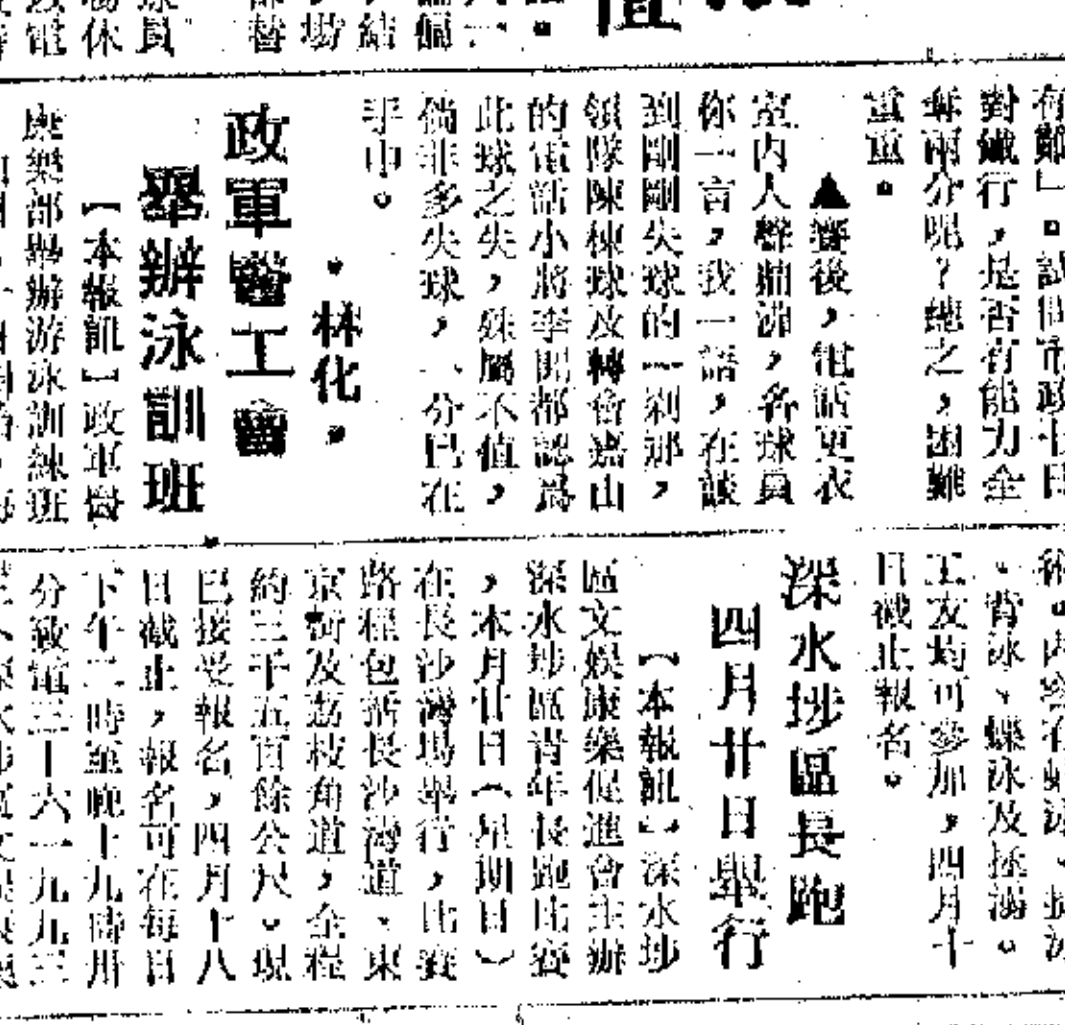 對鐵行,是否有能力全
奪兩分呢?總之,困難
重重。
▲賽後,電話更衣
室內人聲鼎沸,各球員
你一言,我一語,在談
到剛剛失球的一剎那,
領隊陳棟球及轉會嘉山
的電話小將李明都認爲
此球之失,殊屬不值,
倘非多失球,一分已在
手中。
·林化·
政軍醫工會
舉辦泳訓班
【本報訊】政軍醫
康樂部舉辦游泳訓練班
、背泳、蝶泳及拯溺。
工友均可參加,四月十
日截止報名。
深水埗區長跑
四月廿日舉行
【本報訊】深水埗
區文娛康樂促進會主辦
深水埗區青年長跑比賽
,本月廿日(星期日)
在長沙灣場舉行,比賽
路程包括長沙灣道、東
京街及荔枝角道,全程
約三千五百餘公尺。現
已接受報名,四月十八
日截止,報名可在每日
下午二時至晚上九時卅
分致電三—八六一九九三